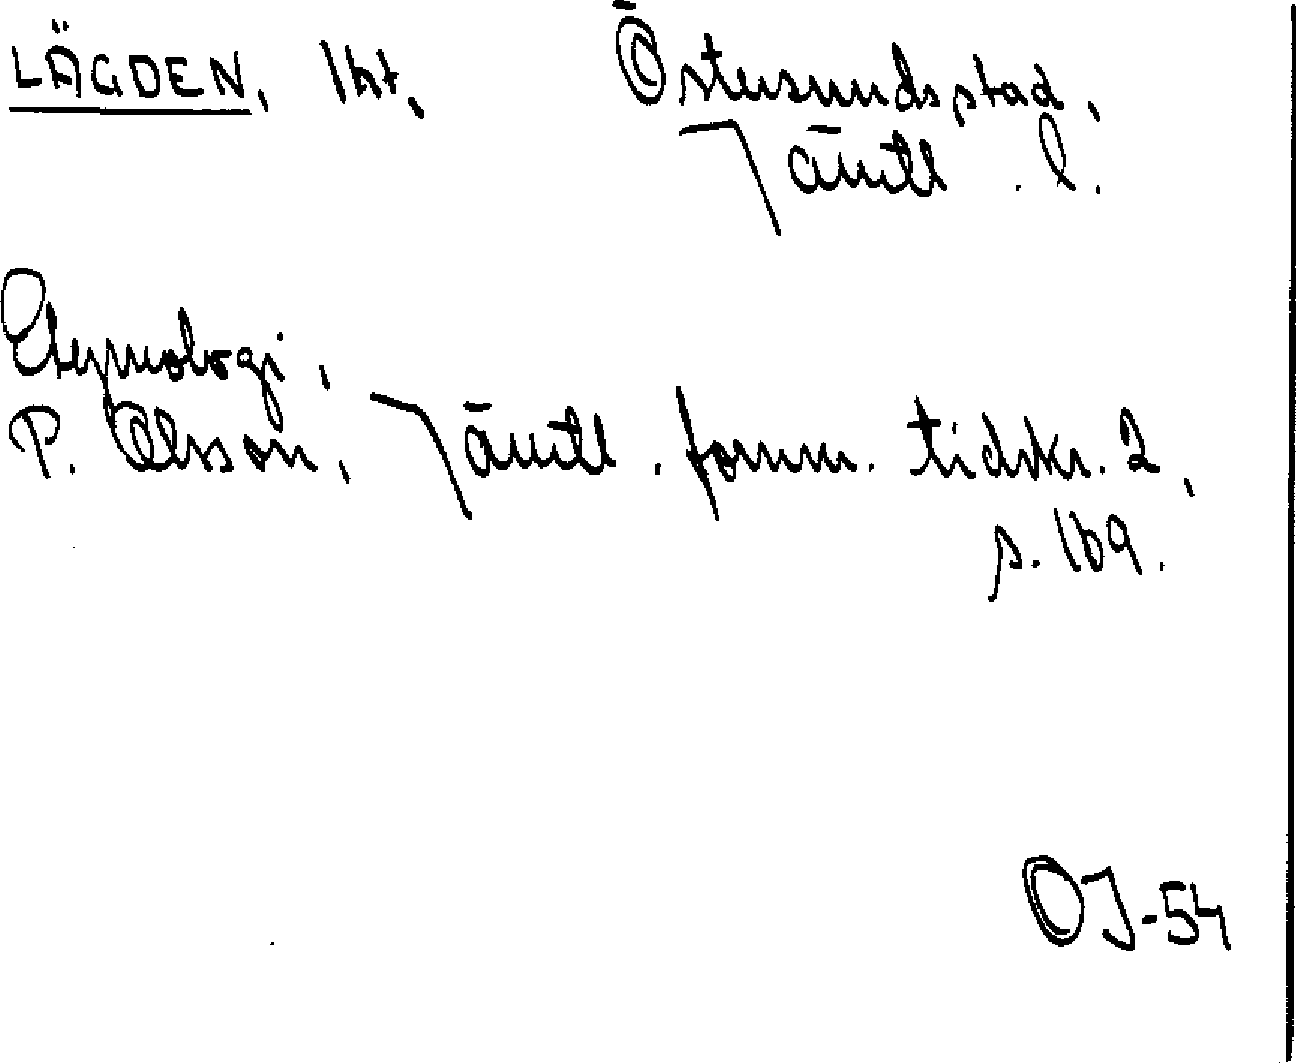 LÄGDEN, lht, Östersunds stad,
Jämtl. l.
Etymologi,
P. Olsson, Jämtl. fornm. tidskr. 2,
s. 169.
OJ-54